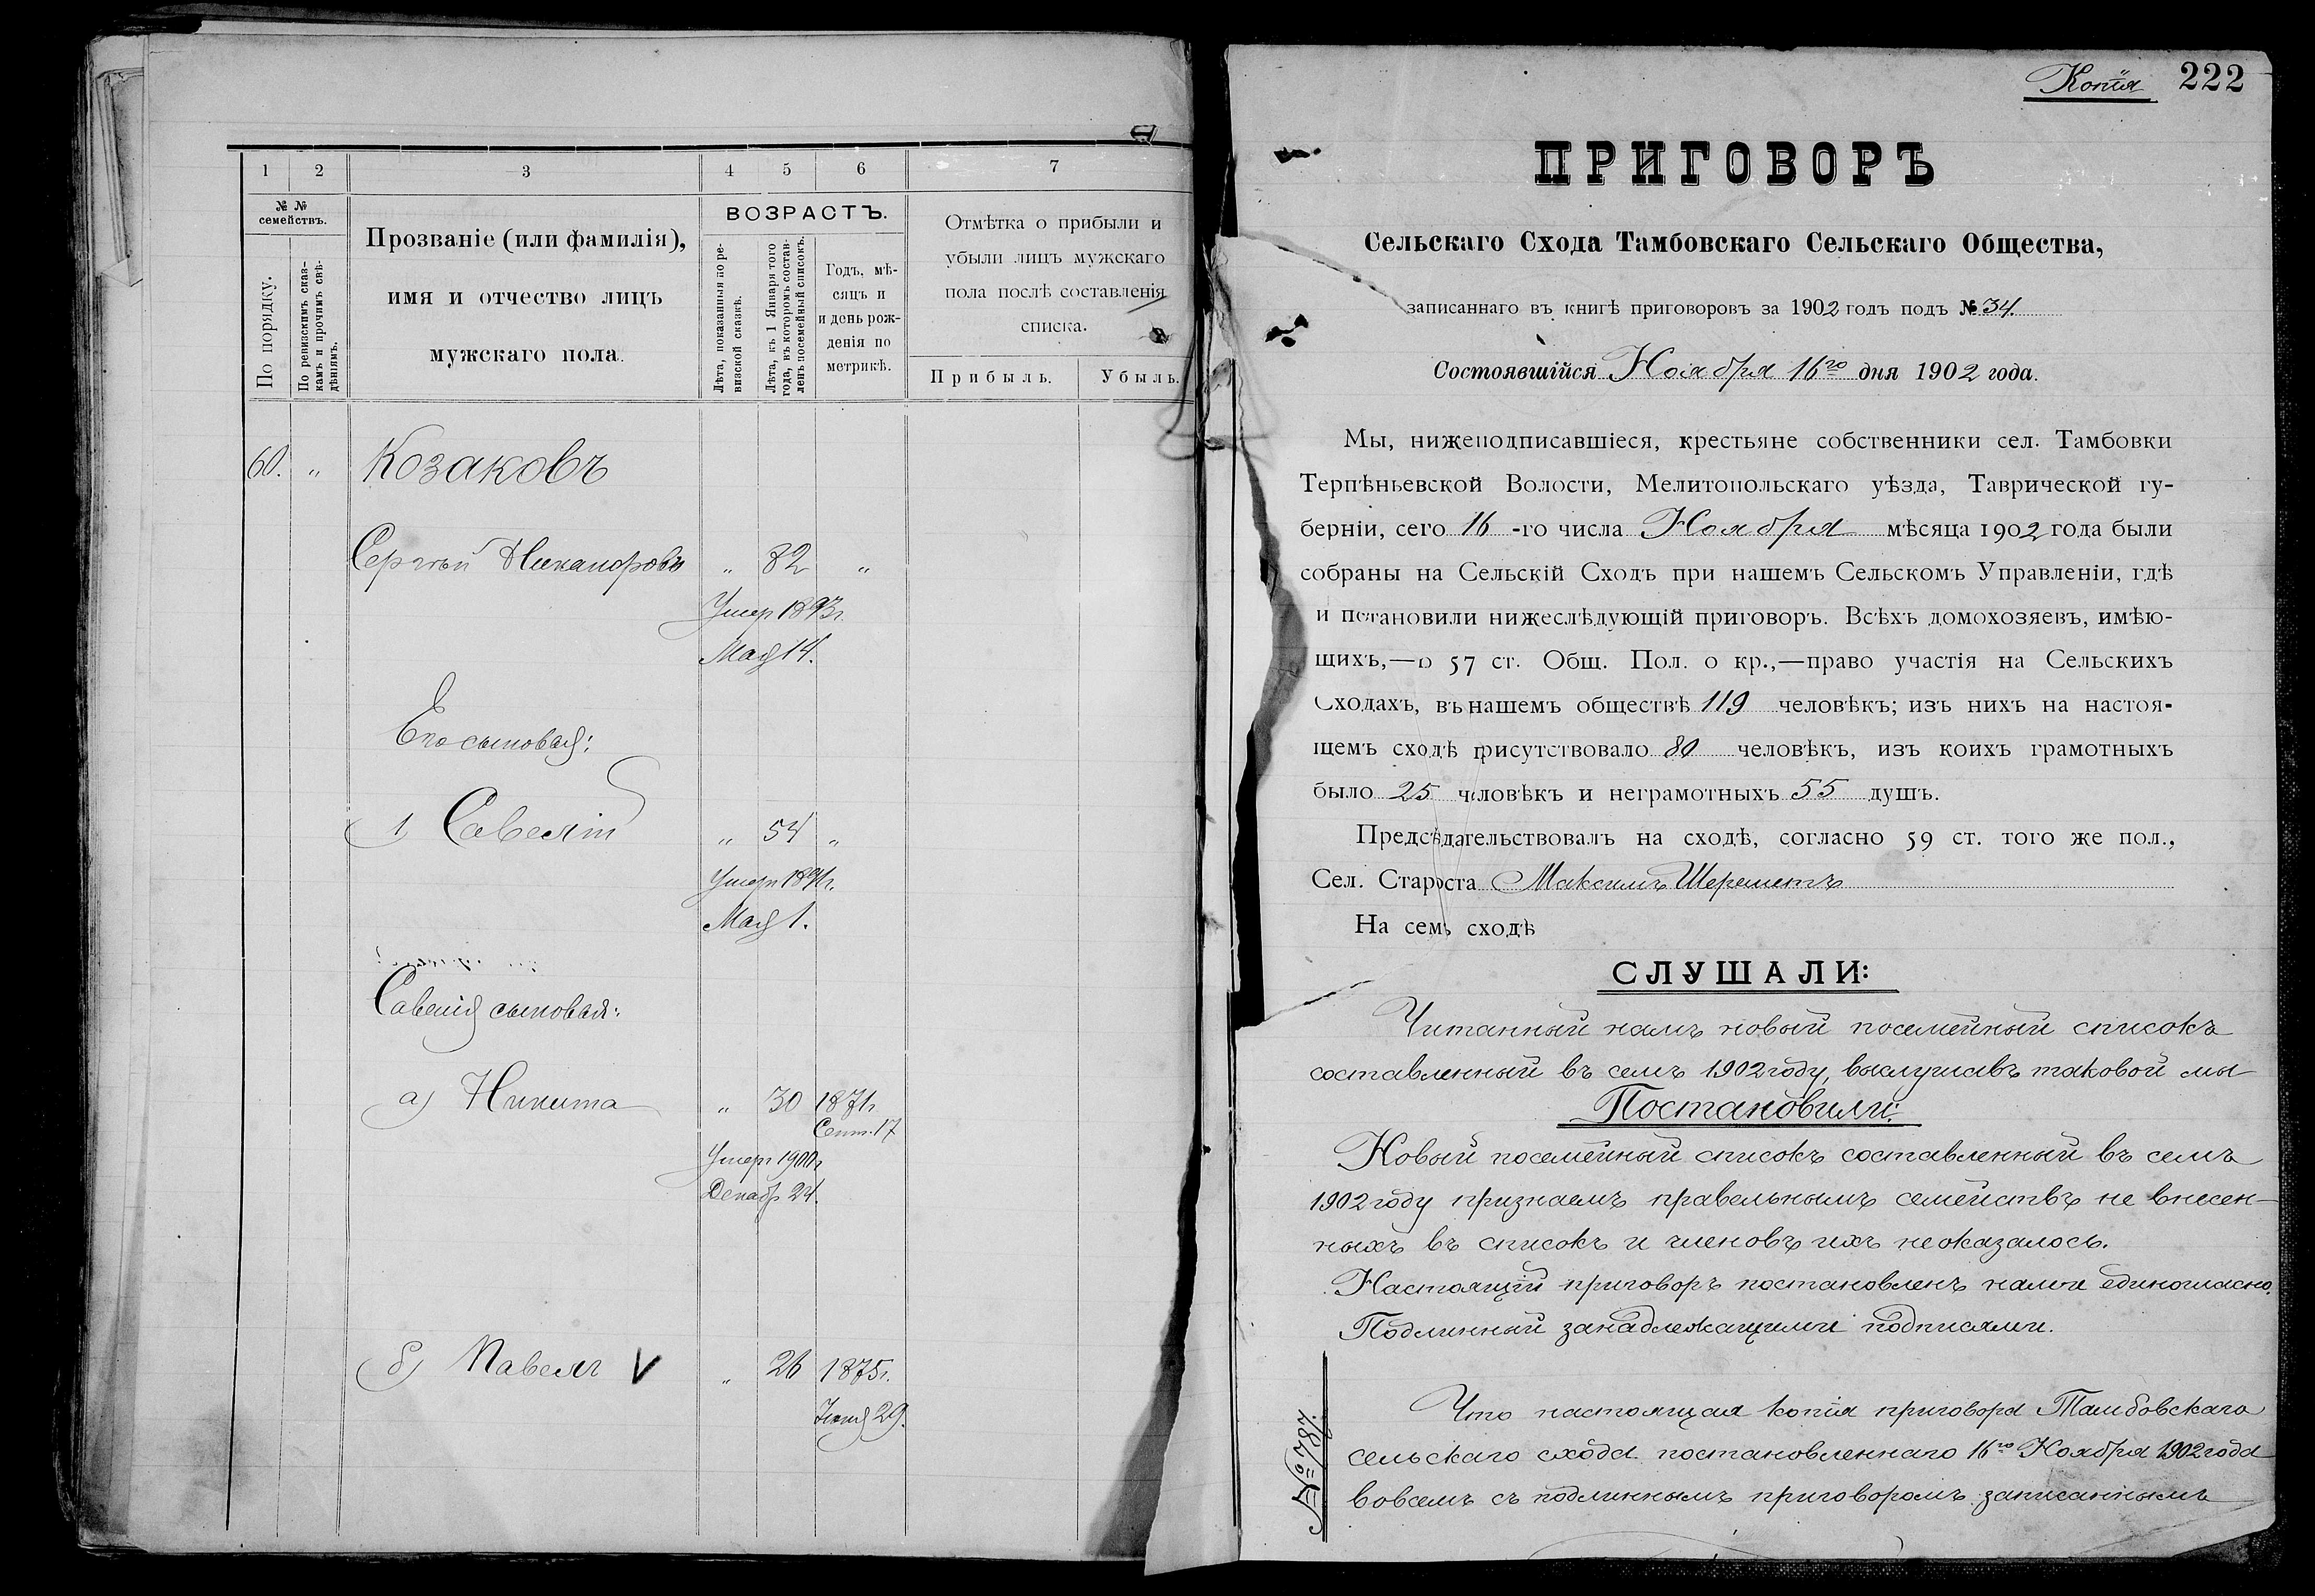 1 2 3 4 5 6 7
№ № семействъ.
По порядку.
По ревизскимъ сказ-
камъ и прочимъ свѣ-
дѣніямъ.
Прозваніе (или фамилія),
имя и отчество лицъ
мужскаго пола.
ВОЗРАСТЪ.
Лѣта, показанныя по ре-
визской сказкѣ.
Лѣта, къ 1 Января того
года, въ которомъ состав-
ленъ посемейный списокъ.
Годъ, мѣ-
сяцъ и
и день рож-
денія по
метрикѣ.
Отмѣтка о прибыли и
убыли лицъ мужскаго
пола послѣ составленія
списка.
Прибыль. Убыль.
60. „ Козаковъ
Сергѣй Никаноровъ „ 82 „
Умер 1893г.
Мая 14.
Его сыновья:
1) Савелій „ 54 „
Умеръ
Мая 1.
Савелія сыновья:
а) Никита „ 30 1871г
Сент. 17
Умеръ 1900г
Декабр 24.
б) Павелъ V „ 26 1875г.
29.
Копія 222
ПРИГОВОРЪ
Сельскаго Схода Тамбовскаго Сельскаго Общества,
записаннаго въ книгѣ приговоровъ за 1902 годъ подъ № 34.
Состоявшійся Ноября 16го дня 1902 года.
Мы, нижеподписавшіеся, крестьяне собственники сел. Тамбовки
Терпѣньевской Волости, Мелитопольскаго уѣзда, Таврической гу-
берніи, сего 16-го числа Ноября мѣсяца 1902 года были
собраны на Сельскій Сходъ при нашемъ Сельскомъ Управленіи, гдѣ
и постановили нижеслѣдующій приговоръ. Всѣхъ домохозяевъ, имѣю-
щихъ,—по 57 ст. Общ. Пол. о кр.,—право участія на Сельскихъ
Сходахъ, въ нашемъ обществѣ 119 человѣкъ; изъ нихъ на настоя-
щемъ сходѣ присутствовало 80 человѣкъ, изъ коихъ грамотныхъ
было 25 человѣкъ и неграмотныхъ 55 душъ.
Предсѣдательствовалъ на сходѣ, согласно 59 ст. того же пол.,
Сел. Староста Максимъ Шереметъ
На семъ сходѣ
СЛУШАЛИ:
Читанный намъ новый посемейный списокъ
составленный въ семъ 1902 году, выслушавъ таковой мы
Постановили:
Новый посемейный списокъ составленный въ семъ
1902 году признаемъ правельнымъ семействъ не внесен-
ныхъ въ списокъ и членовъ ихъ не оказалось.
Настоящій приговоръ постановленъ нами единогласно.
Подлинный за надлежащими подписями.
Что настоящая копія приговора Тамбовскаго
сельскаго схода постановленнаго 16го Ноября 1902 года
вовсемъ съ подлиннымъ приговоромъ записаннымъ
№ 787.